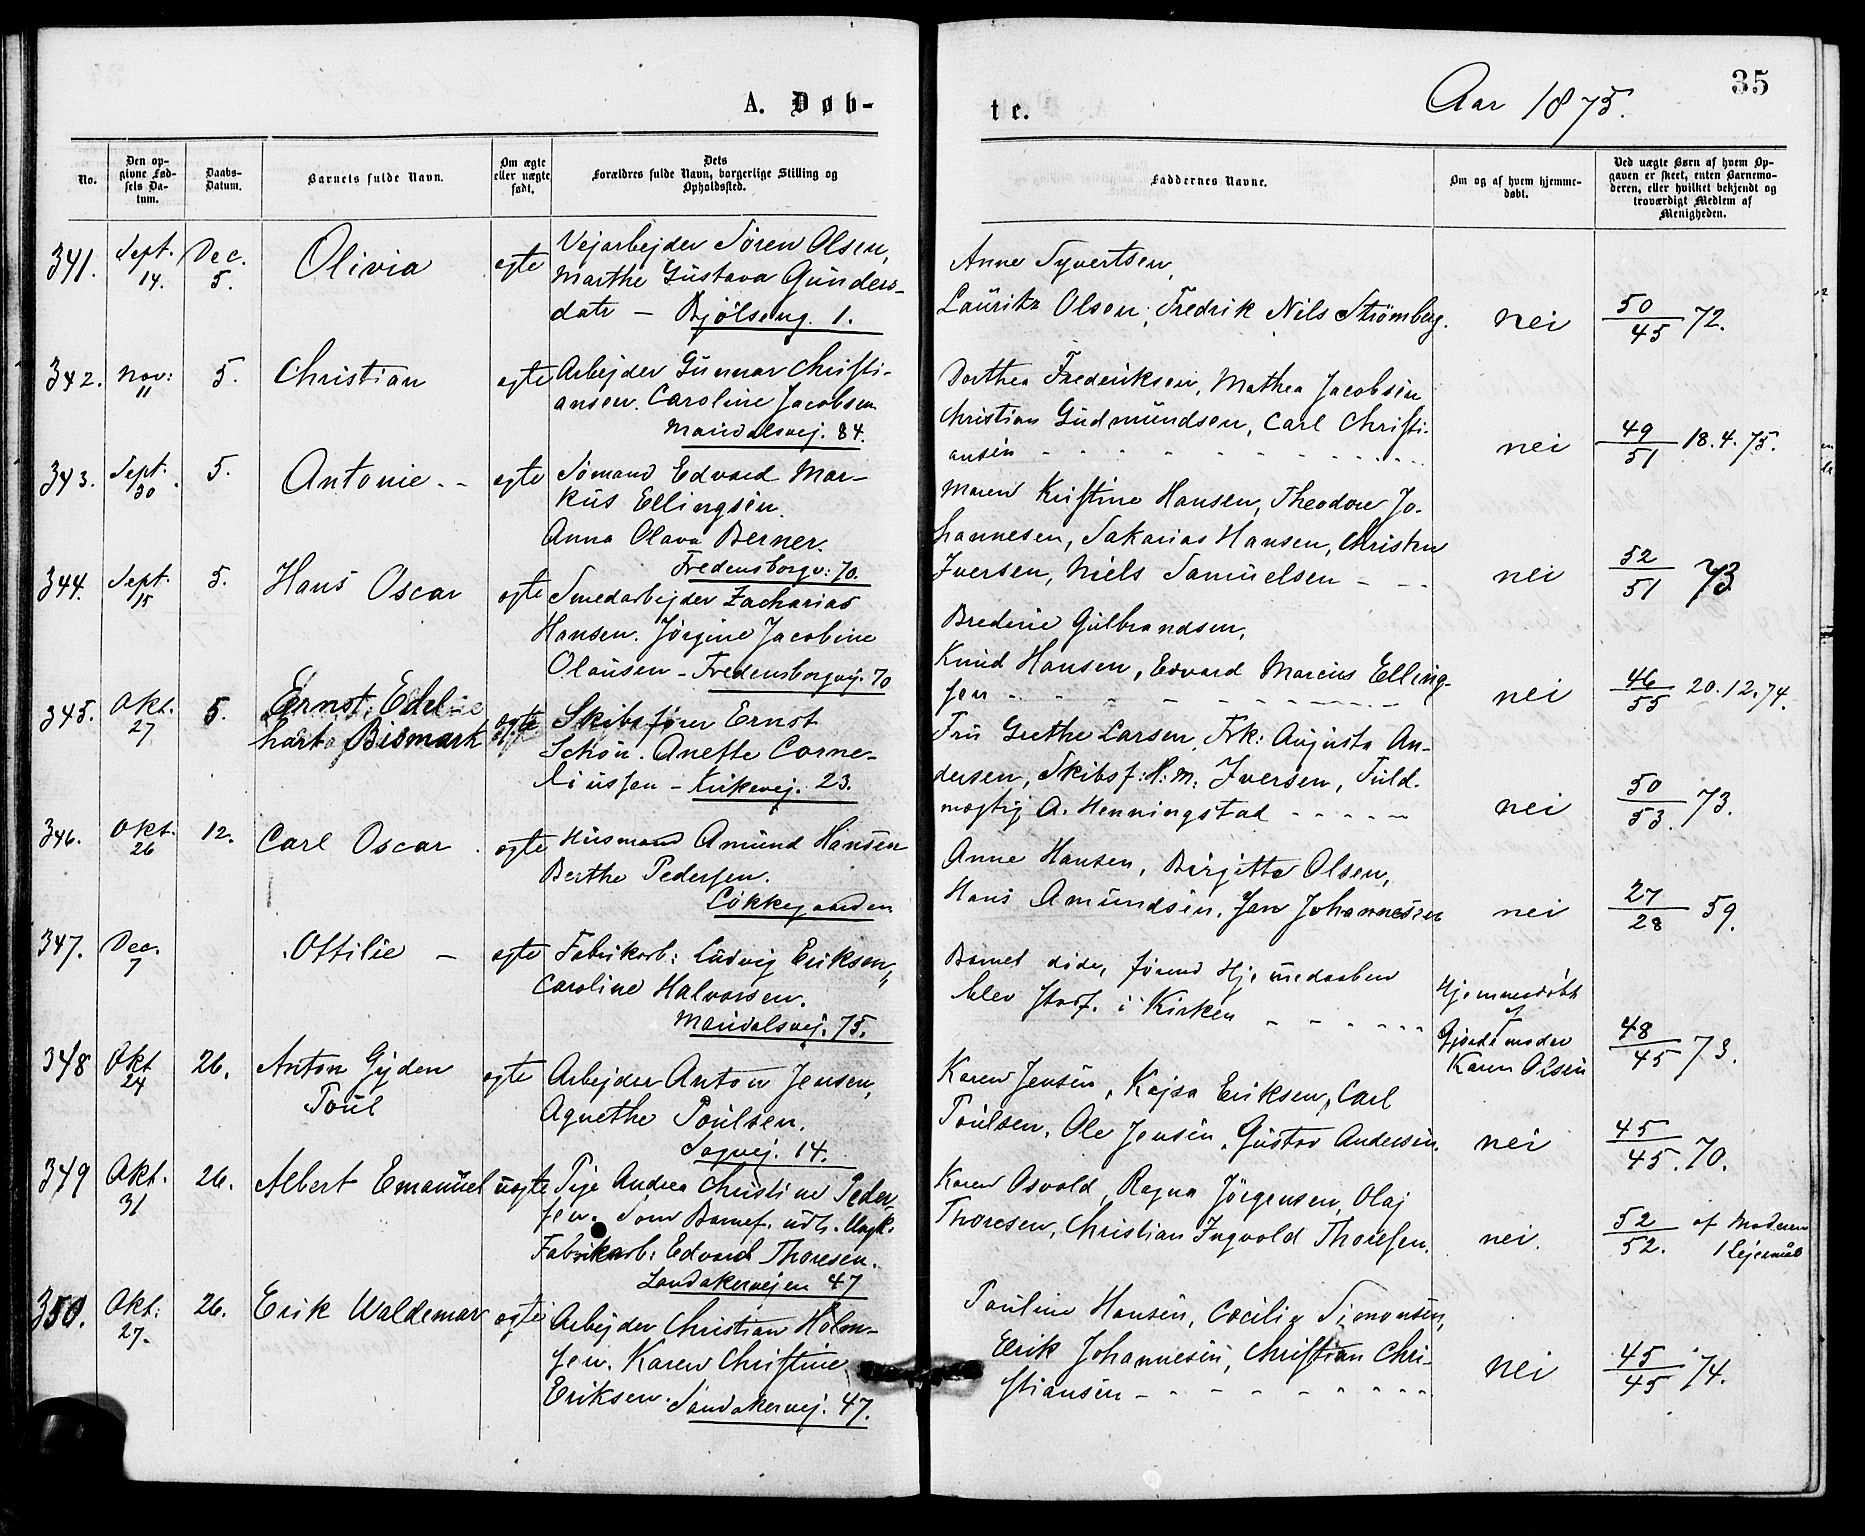 A. Døb-
te.
Aar 1875.
35
No.
Den op-
givne Fød-
sels Da-
tum.
Daabs-
Datum.
Barnets fulde Navn.
Om ægte
eller uægte
født.
Dets
Forældres fulde Navn, borgerlige Stilling og
Opholdssted.
Faddernes Navne.
Om og af hvem hjemme-
døbt.
Ved uægte Børn af hvem Op-
gaven er skeet, enten Barnemo-
deren, eller hvilket bekjendt og
troværdigt Medlem af
Menigheden.
341. Sept. 14. Dec. 5. Olivia egte
Vejarbejder Søren Olsen,
Marthe Gustava Gunders-
datr — Bjølseng. 1.
Anne Syvertsen,
Lauritz Olsen, Fredrik Nils Strømberg.
nei
50/45 72.
342. Nov: 11 5. Christian egte
Arbejder Gunnar Christi-
ansen. Caroline Jacobsen
Maridalsvej. 84.
Dorthea Frederiksen, Mathea Jacobsen
Christian Gudmundsen, Carl Christi-
ansen
nei
49/51 18.4.75.
343. Sept. 30. 5. Antonie egte
Sømand Edvard Mar-
kus Ellingsen.
Anna Olava Berner.
Fredensborgv: 70.
Maren Kristine Hansen, Theodore Jo-
hannesen, Sakarias Hansen, Christen
Iversen, Niels Samuelsen
nei
52/51 73
344. Sept. 15 5. Hans Oscar egte
Smedarbejder Zacharias
Hansen. Jørgine Jacobine
Olausen - Fredensborgvej. 70
Bredine Gulbrandsen,
Knud Hansen, Edvard Marcus Elling-
sen
nei
46/55 20.12.74.
345. Okt. 27 5. Ernst Edel-
hart Bismark egte
Skibsfører Ernst
Schøn. Anette Corne-
liussen - Kirkevej. 23.
Fru Grethe Larsen, Frk: Augusta An-
dersen, Skibsf: H: M: Iversen, Fuld-
mægtig A. Henningstad
nei
50/53. 73.
346. Okt. 26 12. Carl Oscar egte
Husmand Amund Hansen
Berthe Pedersen.
Løkkegaarden
Anne Hansen, Birgitte Olsen,
Hans Amundsen, Jan Johannesen
nei
27/28 59.
347. Dec. 7 Ottilie — egte
Fabrikarb: Ludvig Eriksen,
Caroline Halvorsen.
Maridalsvej. 75.
Barnet døde, førend Hjemmedaaben
blev stadf. i Kirken
Hjemmedøbt
af
Gjordemoder
Karen Olsen
48/45 73.
348 Okt 24 26. Anton Gyden
Poul egte
Arbejder Anton Jensen,
Agnethe Poulsen.
Sagvej. 14.
Karen Jensen, Kajsa Eriksen, Carl
Poulsen, Ole Jensen, Gustav Andersen.
nei
45/45. 70.
349 Okt. 31 26. Albert Emanuel uegte
Pige Andrea Christine Peder-
sen. Som Barnef. udl. Ungk.
Fabrikarb: Edvard Thoresen.
Sandakerveien 47
Karen Osvold, Ragna Jørgensen, Olaf
Thoresen, Christian Ingvold Thoresen.
nei.
52/52. af Moderen
1 Lejermaal
350. Okt: 27. 26. Erik Waldemar egte
Arbejder Christian Holm-
sen. Karen Christine
Eriksen. Sandakervej. 47.
Pauline Hansen, Cæcilie Simonsen,
Erik Johannesen, Christian Chri-
stiansen
nei
45/45 74.